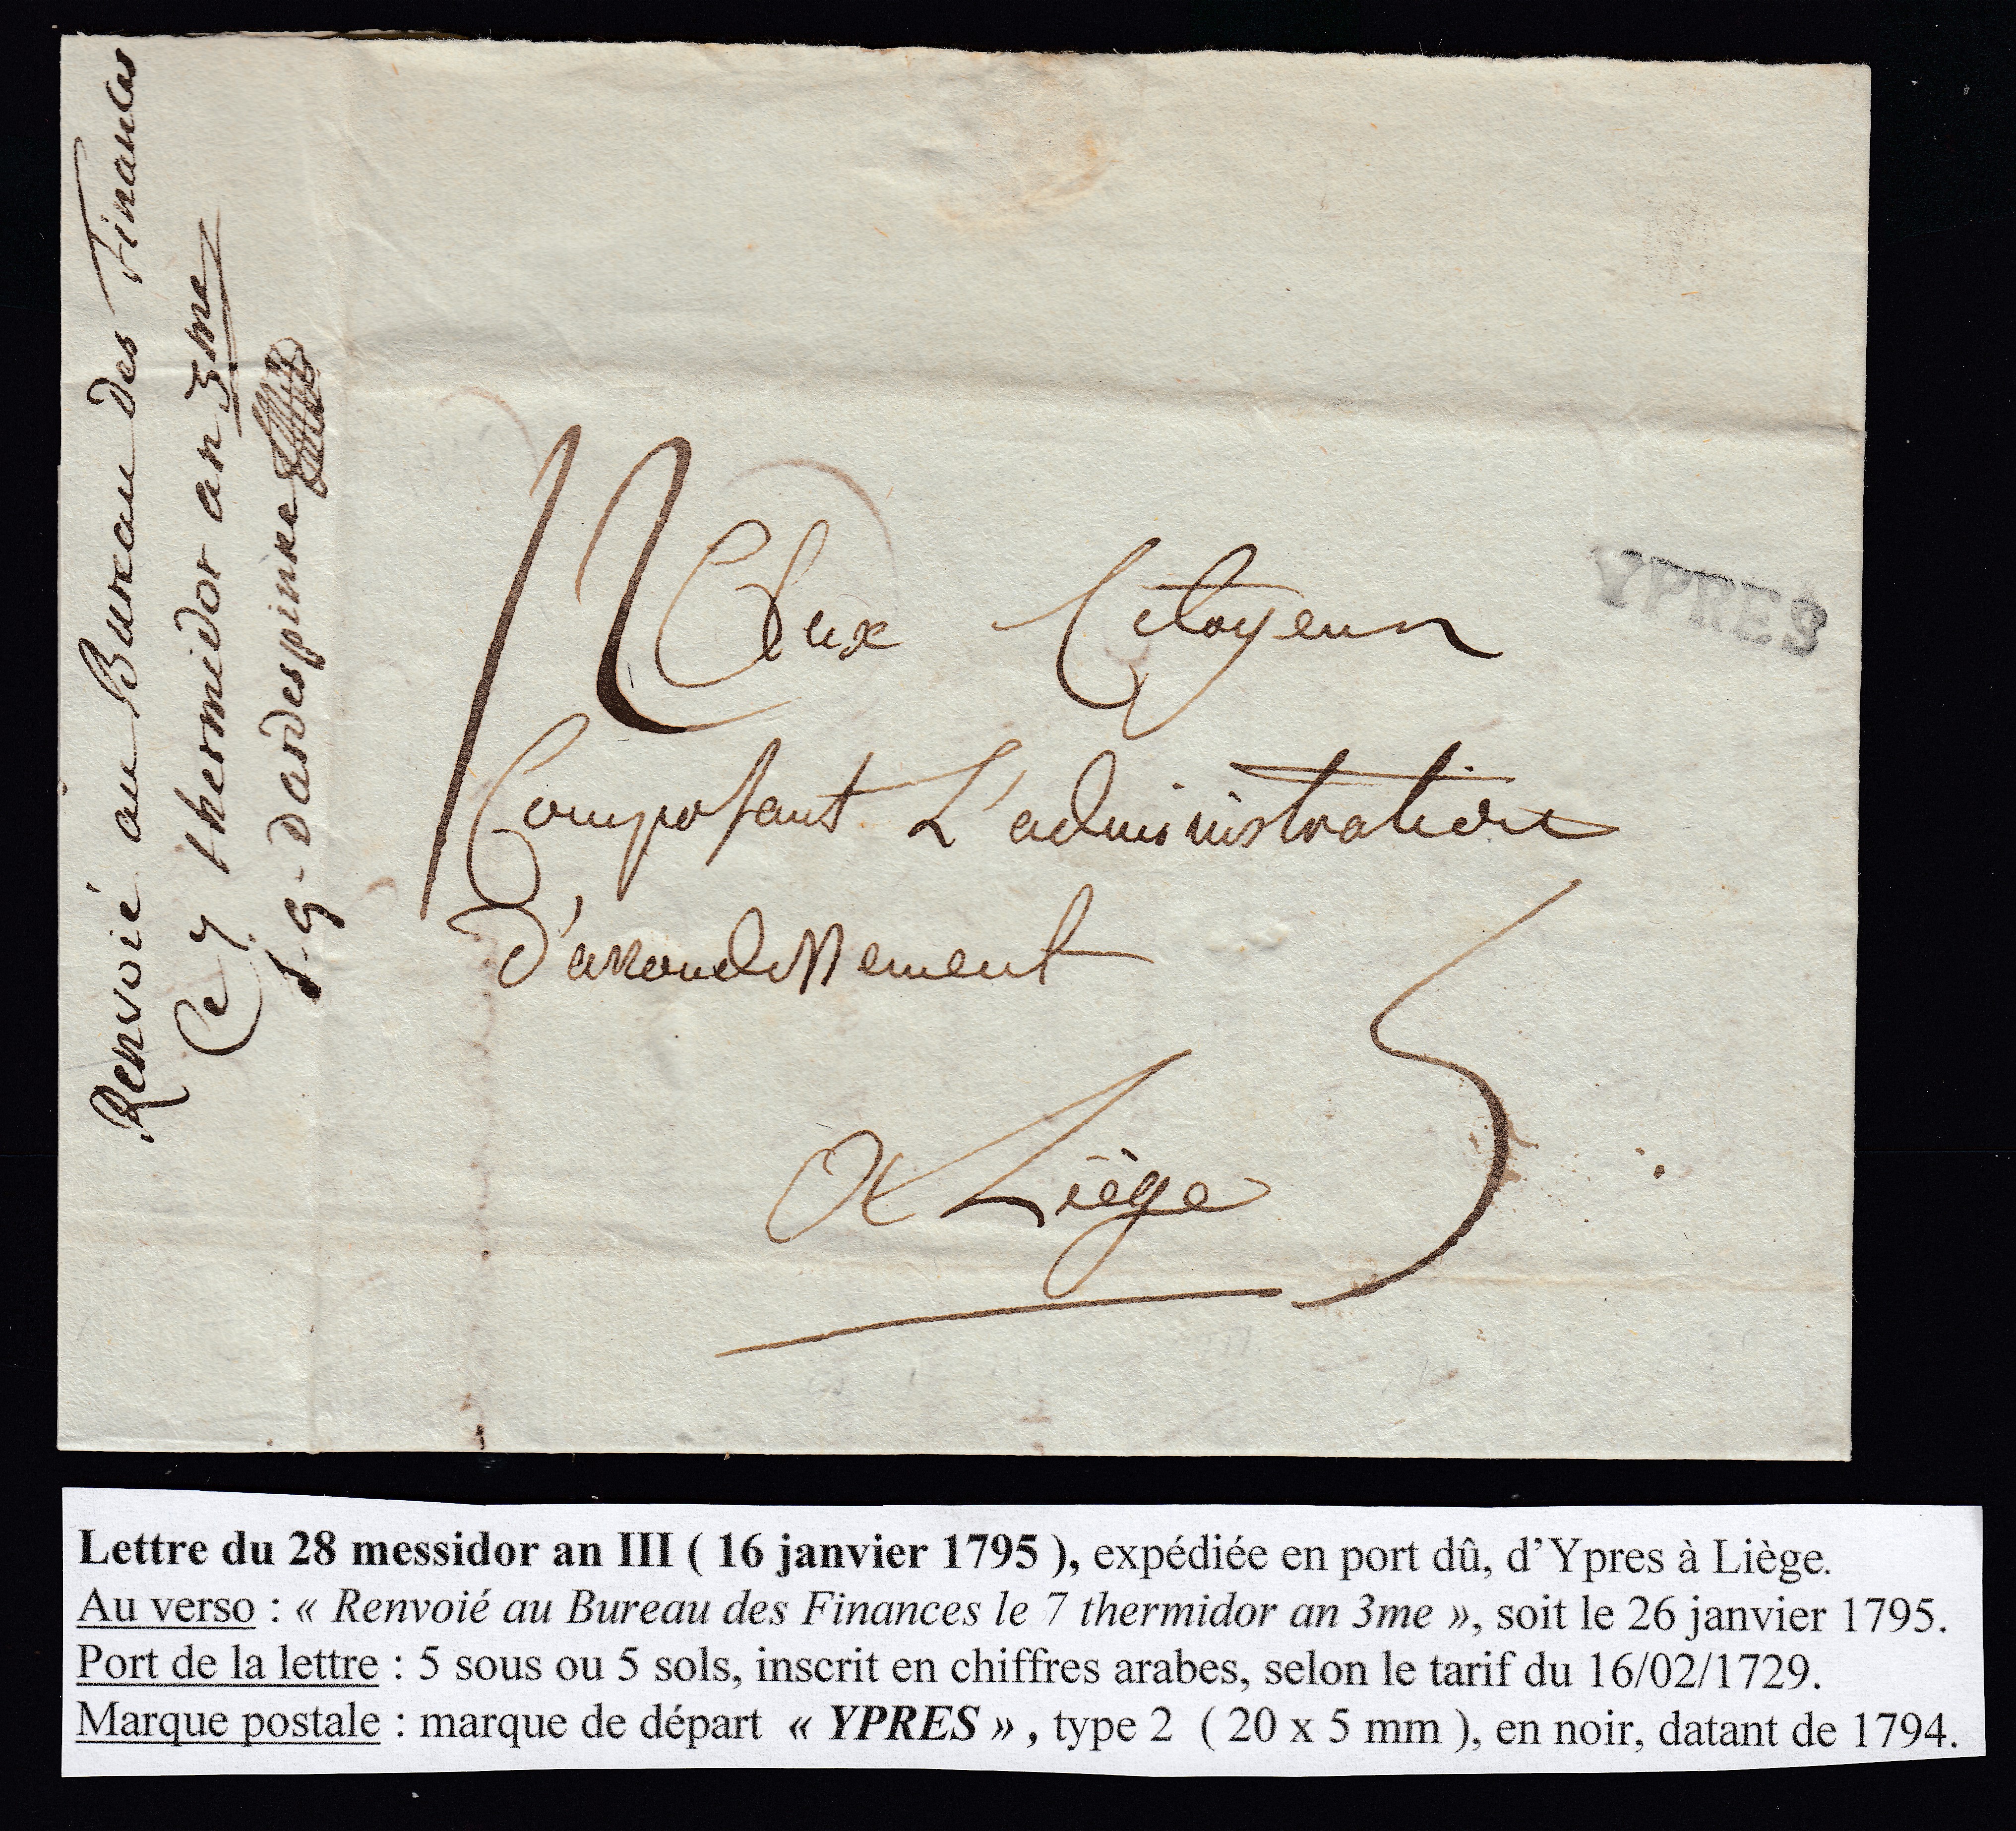 Renvoié au Bureau des Finances
Ce 7 thermidor an 3me
s.g. Dardespinne
12
Aux Citoyens
YPRES
Composant L'administration
D'arrondissement
5
A Liège
Lettre du 28 messidor an III ( 16 janvier 1795 ), expédiée en port dû, d’Ypres à Liège.
Au verso : « Renvoié au Bureau des Finances le 7 thermidor an 3me », soit le 26 janvier 1795.
Port de la lettre : 5 sous ou 5 sols, inscrit en chiffres arabes, selon le tarif du 16/02/1729.
Marque postale : marque de départ « YPRES » , type 2 ( 20 x 5 mm ), en noir, datant de 1794.